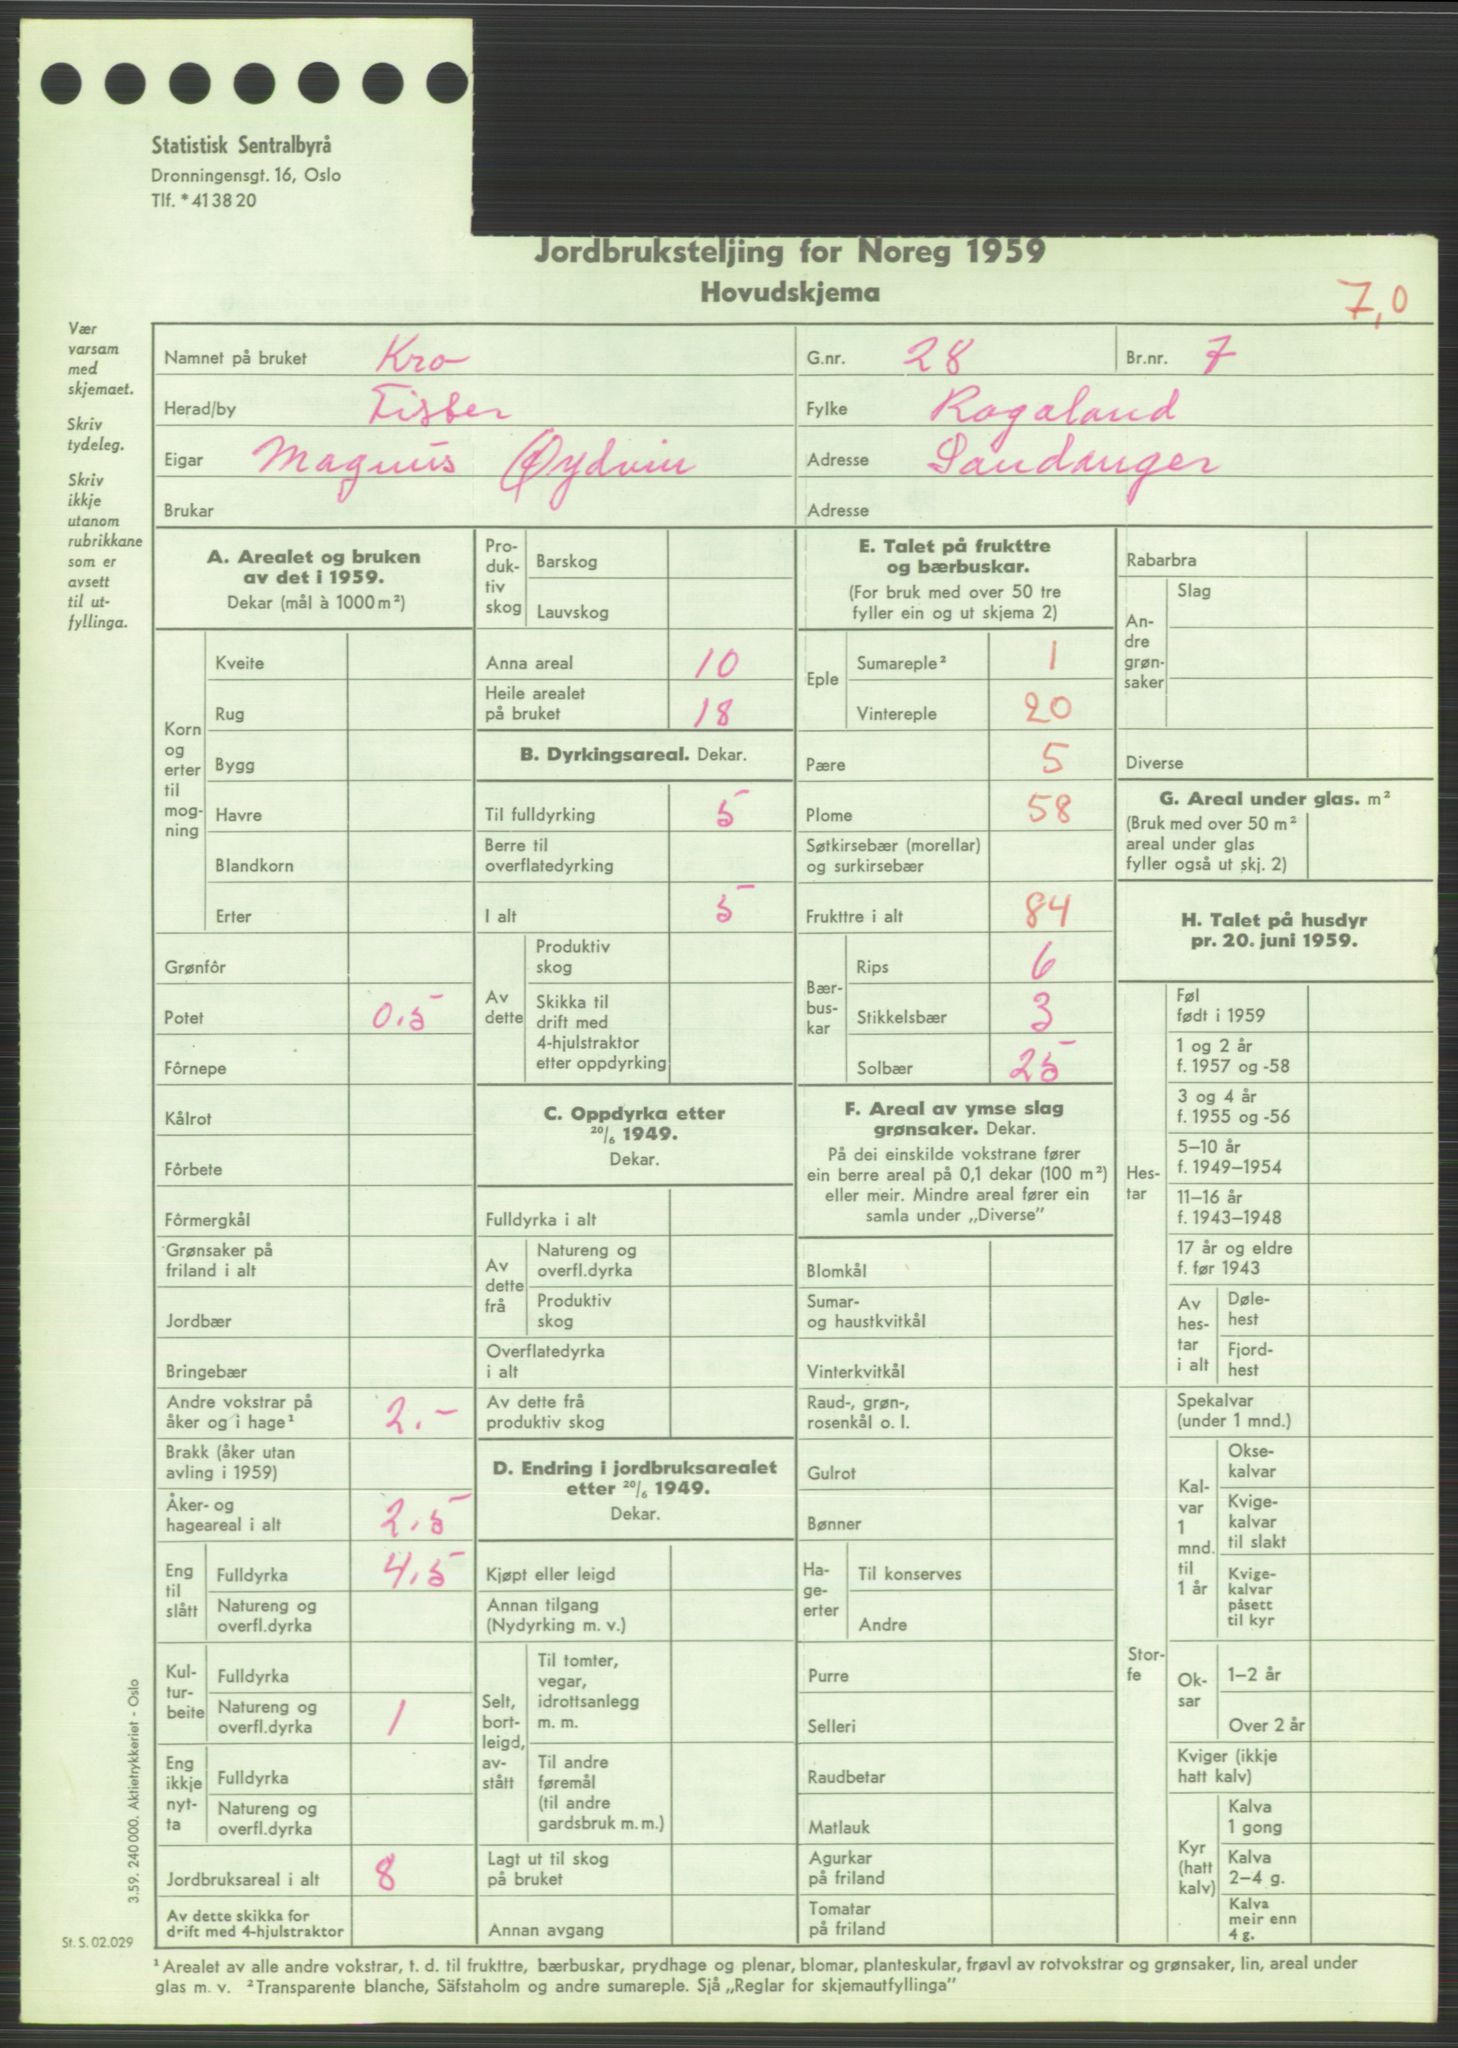 Statistisk Sentralbyrå
Dronningensgt. 16, Oslo
Tlf. * 41 38 20
Jordbruksteljing for Noreg 1959
Hovudskjema
7,0
Vær
varsam
med
skjemaet.
Skriv
tydeleg.
Skriv
ikkje
utanom
rubrikkane
som er
avsett
til ut-
fyllinga.
Namnet på bruket Kro G.nr. 28 Br.nr. 7
Herad/by Fister Fylke Rogaland
Eigar Magnus Øydvin Adresse Sandanger
Brukar Adresse
A. Arealet og bruken
av det i 1959.
Dekar (mål à 1000 m²)
Korn
og
erter
til
mog-
ning
Kveite
Rug
Bygg
Havre
Blandkorn
Erter
Grønfôr
Potet 0.5
Fôrnepe
Kålrot
Fôrbete
Fôrmergkål
Grønsaker på
friland i alt
Jordbær
Bringebær
Andre vokstrar på
åker og i hage¹ 2.-
Brakk (åker utan
avling i 1959)
Åker- og
hageareal i alt 2.5
Eng
til
slått
Fulldyrka 4.5
Natureng og
overfl.dyrka
Kul-
tur-
beite
Fulldyrka
Natureng og
overfl.dyrka 1
Eng
ikkje
nyt-
ta
Fulldyrka
Natureng og
overfl.dyrka
Jordbruksareal i alt 8
Av dette skikka for
drift med 4-hjulstraktor
Pro-
duk-
tiv
skog
Barskog
Lauvskog
Anna areal 10
Heile arealet
på bruket 18
B. Dyrkingsareal. Dekar.
Til fulldyrking 5
Berre til
overflatedyrking
I alt 5
Av
dette
Produktiv
skog
Skikka til
drift med
4-hjulstraktor
etter oppdyrking
C. Oppdyrka etter
20/6 1949.
Dekar.
Fulldyrka i alt
Av
dette
frå
Natureng og
overfl.dyrka
Produktiv
skog
Overflatedyrka
i alt
Av dette frå
produktiv skog
D. Endring i jordbruksarealet
etter 20/6 1949.
Dekar.
Kjøpt eller leigd
Annan tilgang
(Nydyrking m. v.)
Selt,
bort-
leigd,
av-
stått
Til tomter,
vegar,
idrottsanlegg
m. m.
Til andre
føremål
(til andre
gardsbruk m. m.)
Lagt ut til skog
på bruket
Annan avgang
E. Talet på frukttre
og bærbuskar.
(For bruk med over 50 tre
fyller ein og ut skjema 2)
Eple
Sumareple² 1
Vintereple 20
Pære 5
Plome 58
Søtkirsebær (morellar)
og surkirsebær
Frukttre i alt 84
Bær-
bus-
kar
Rips 6
Stikkelsbær 3
Solbær 25
F. Areal av ymse slag
grønsaker. Dekar.
På dei einskilde vokstrane fører
ein berre areal på 0,1 dekar (100 m²)
eller meir. Mindre areal fører ein
samla under „Diverse”
Blomkål
Sumar-
og haustkvitkål
Vinterkvitkål
Raud-, grøn-,
rosenkål o. l.
Gulrot
Bønner
Ha-
ge-
erter
Til konserves
Andre
Purre
Selleri
Raudbetar
Matlauk
Agurkar
på friland
Tomatar
på friland
Rabarbra
An-
dre
grøn-
saker
Slag
Diverse
G. Areal under glas. m²
(Bruk med over 50 m²
areal under glas
fyller også ut skj. 2)
H. Talet på husdyr
pr. 20. juni 1959.
Hes-
tar
Føl
født i 1959
1 og 2 år
f. 1957 og -58
3 og 4 år
f. 1955 og -56
5–10 år
f. 1949–1954
11–16 år
f. 1943–1948
17 år og eldre
f. før 1943
Av
hes-
tar
i alt
Døle-
hest
Fjord-
hest
Stor-
fe
Spekalvar
(under 1 mnd.)
Kal-
var
1
mnd.
til
1 år
Okse-
kalvar
Kvige-
kalvar
til slakt
Kvige-
kalvar
påsett
til kyr
Ok-
sar
1–2 år
Over 2 år
Kviger (ikkje
hatt kalv)
Kyr
(hatt
kalv)
Kalva
1 gong
Kalva
2–4 g.
Kalva
meir enn
4 g.
3.59. 240 000. Aktietrykkeriet - Oslo
St. S. 02.029
¹ Arealet av alle andre vokstrar, t. d. til frukttre, bærbuskar, prydhage og plenar, blomar, planteskular, frøavl av rotvokstrar og grønsaker, lin, areal under
glas m. v. ² Transparente blanche, Säfstaholm og andre sumareple. Sjå „Reglar for skjemautfyllinga”